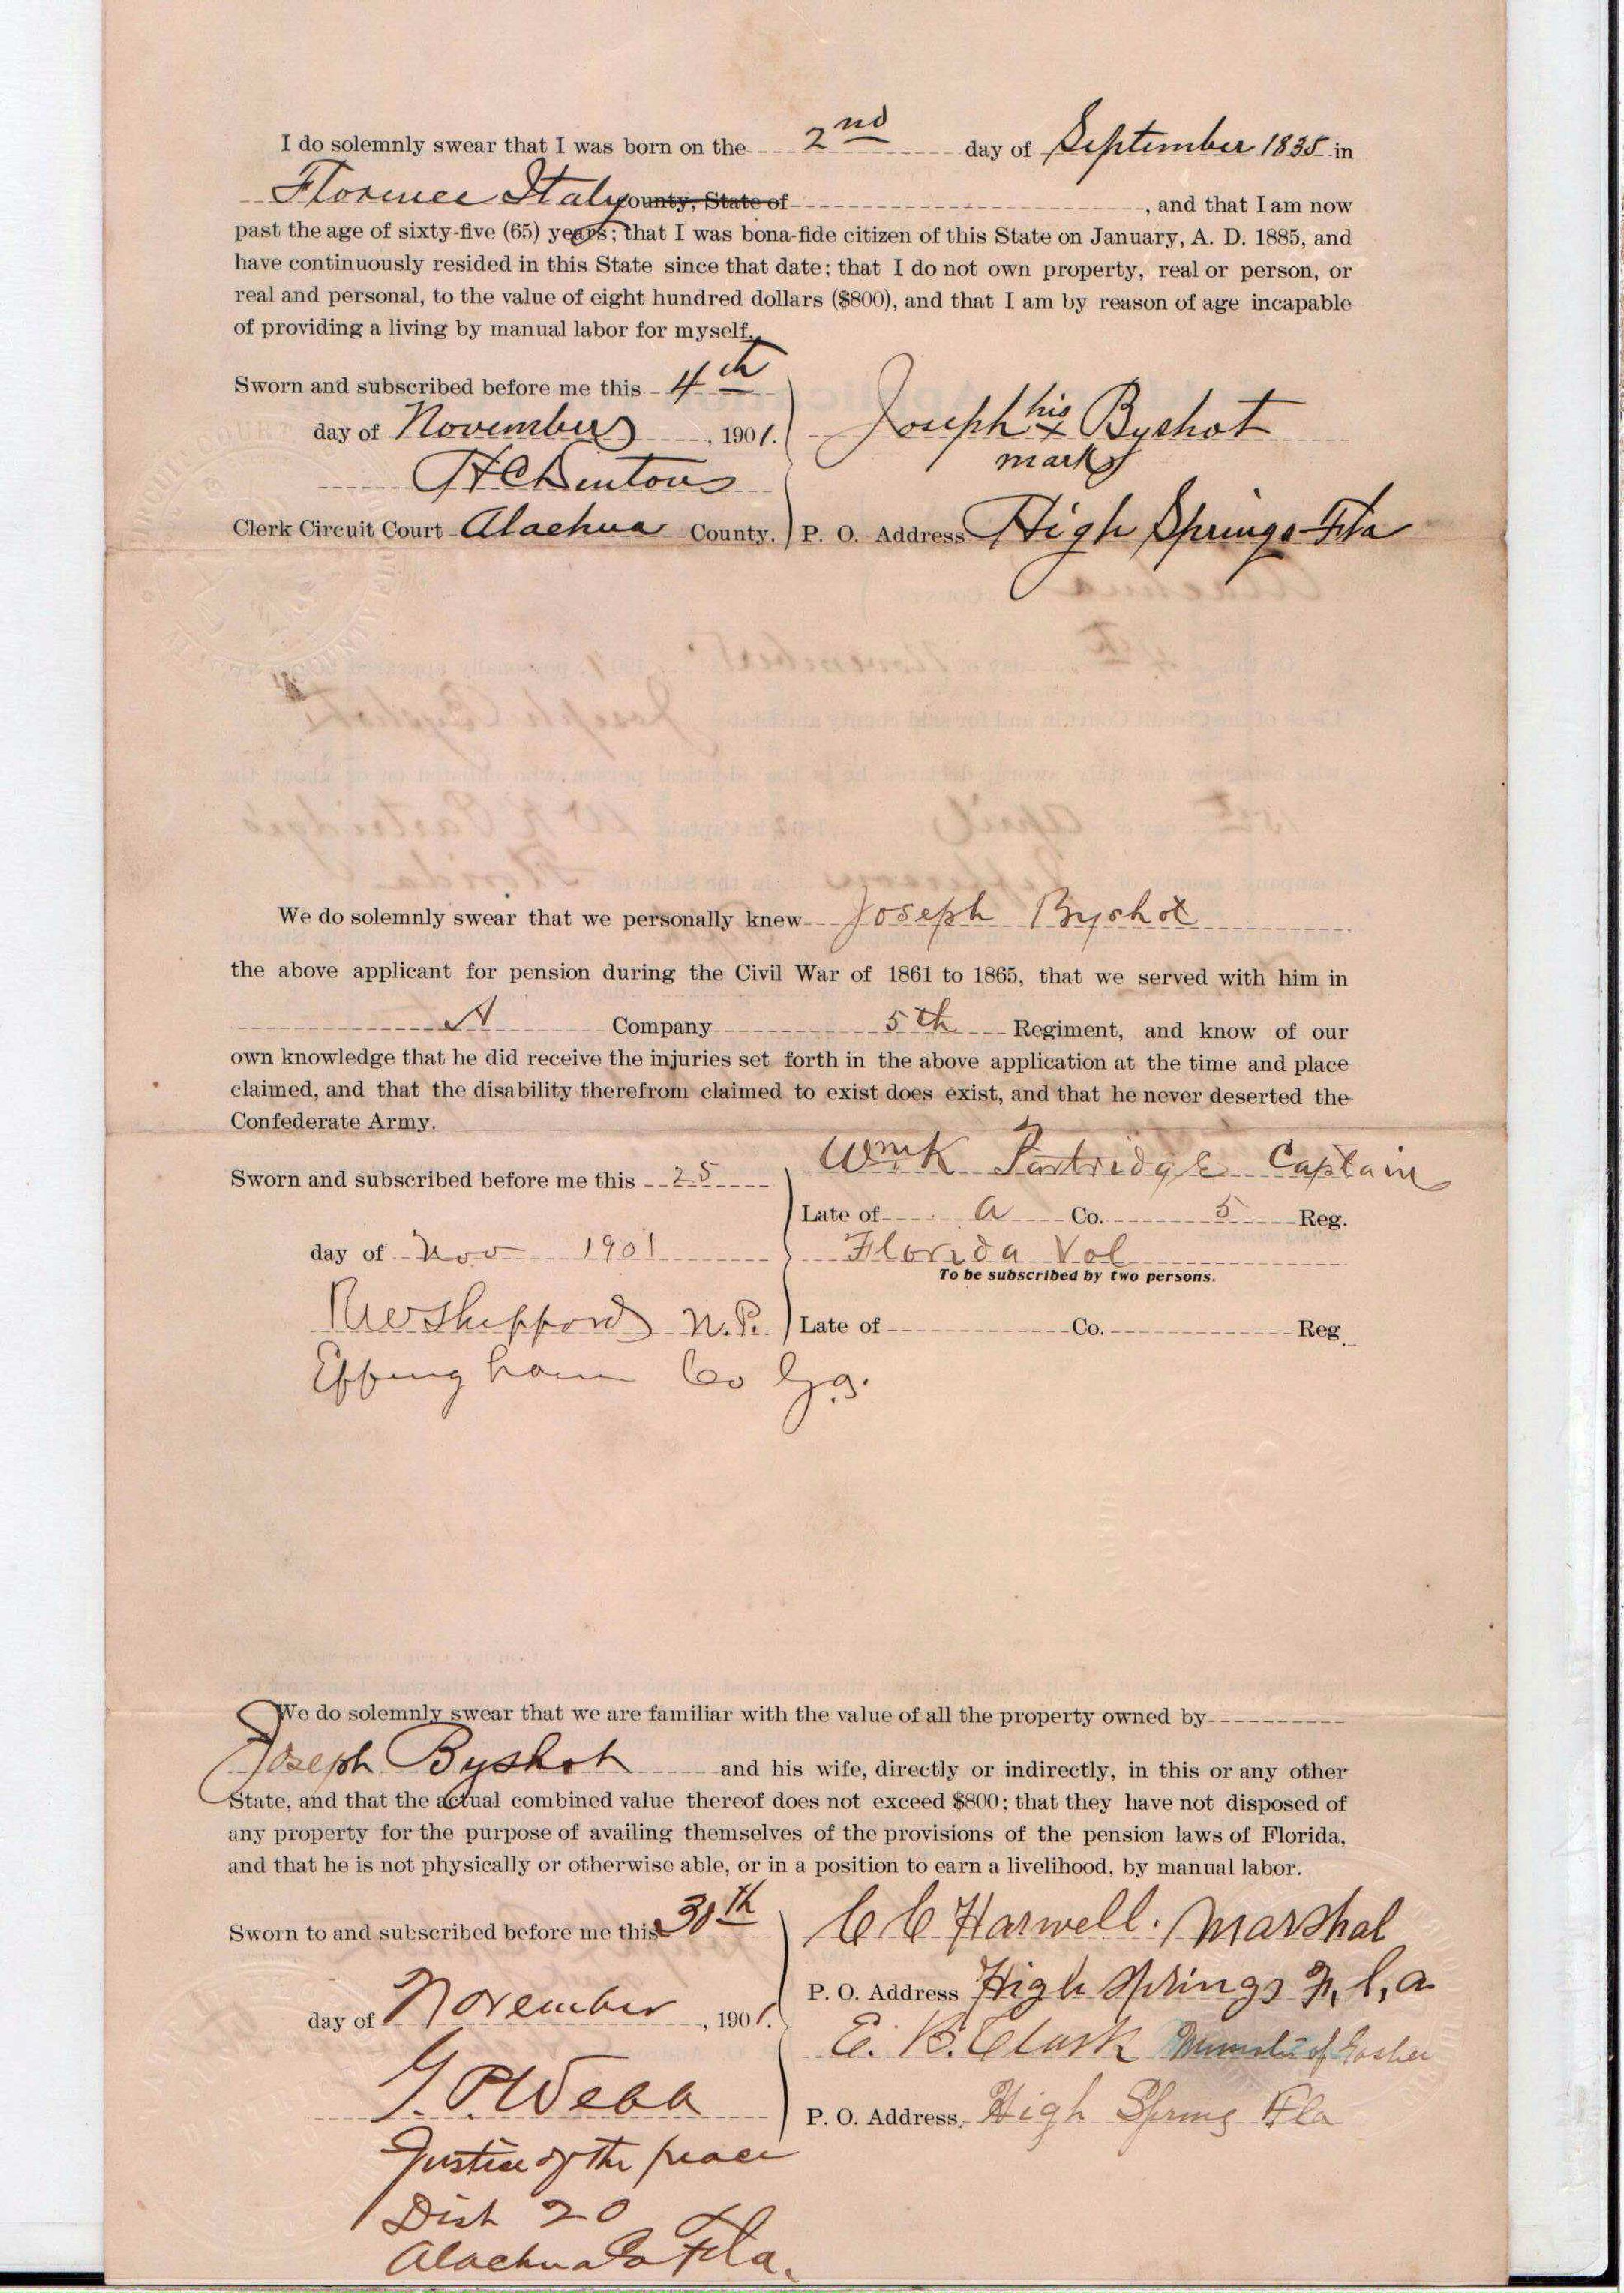 I do solemnly swear that I was born on the 2nd day of September 1835 in
Florence Italy ounty, State of , and that I am now
past the age of sixty-five (65) years; that I was bona-fide citizen of this State on January, A. D. 1885, and
have continuously resided in this State since that date; that I do not own property, real or person, or
real and personal, to the value of eight hundred dollars ($800), and that I am by reason of age incapable
of providing a living by manual labor for myself.
Sworn and subscribed before me this 4th
day of November, 1901.
Joseph his x Byshot
mark
H C Denton
Clerk Circuit Court Alachua County. P. O. Address High Springs Fla
We do solemnly swear that we personally knew Joseph Byshot
the above applicant for pension during the Civil War of 1861 to 1865, that we served with him in
A Company 5th Regiment, and know of our
own knowledge that he did receive the injuries set forth in the above application at the time and place
claimed, and that the disability therefrom claimed to exist does exist, and that he never deserted the
Confederate Army.
Wm K Partridge Captain
Sworn and subscribed before me this 25
Late of A Co. 5 Reg.
day of Nov 1901
Florida Vol
To be subscribed by two persons.
Shepford N. P. Late of Co. Reg.
Effingham Co Ga.
We do solemnly swear that we are familiar with the value of all the property owned by
Joseph Byshot and his wife, directly or indirectly, in this or any other
State, and that the actual combined value thereof does not exceed $800; that they have not disposed of
any property for the purpose of availing themselves of the provisions of the pension laws of Florida,
and that he is not physically or otherwise able, or in a position to earn a livelihood, by manual labor.
Sworn to and subscribed before me this 30th
C C Harwell. Marshal
P. O. Address High Springs F,l,a
day of November, 1901.
E. B. Clark of
G. P. Webb
P. O. Address, High Spring Fla
Justice of the peace
Dist 20
Alachua Co Fla.